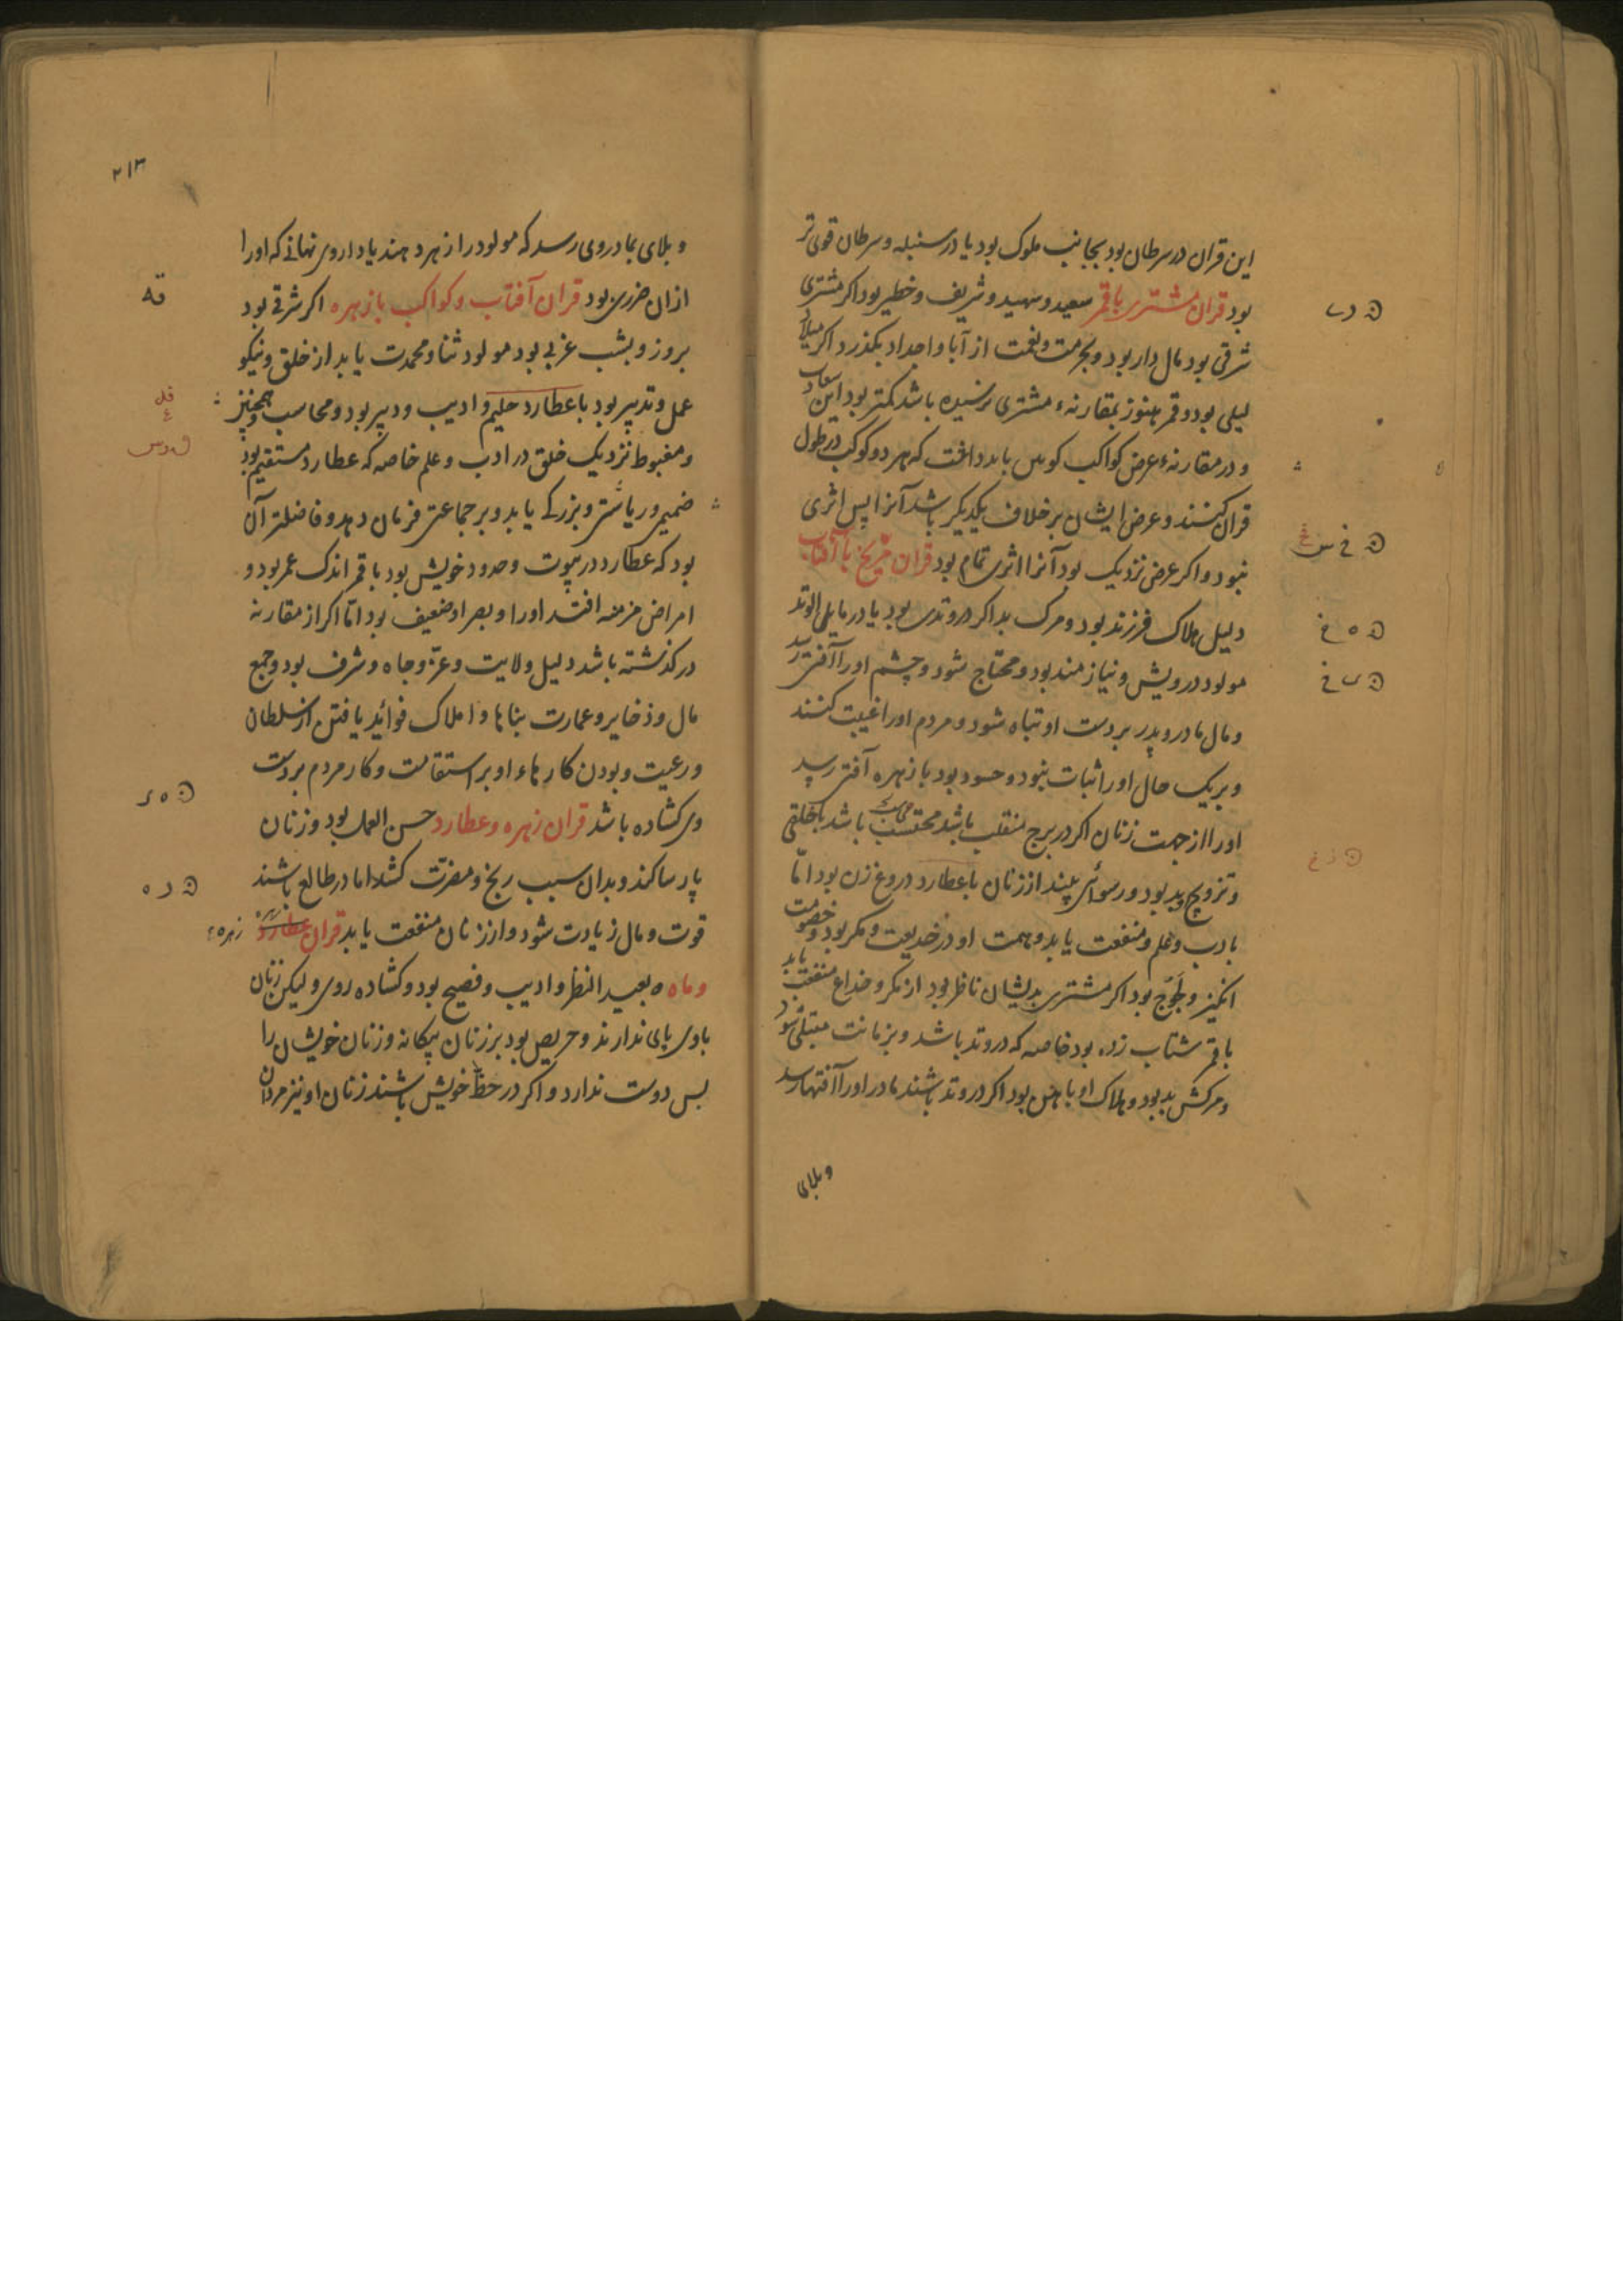 این قران در سرطان بود بجانب ملوک بود یا در سنبله و سرطان قوی تر
بود قران مشتری با قمر سعید و شهید و شریف و خطیر بود اکر مشتری
شرقی بود مال دار بود و بحرمت و نعمت از آبا و اجداد بکذرد اکر میلاد
لیلی بود و قمر هنوز بمقارنهٔ مشتری نرسیده باشد کمتر بود این سعادت
و در مقارنهٔ عرض کواکب کوش باید داشت که هر دو کوکب در طول
قران کنند و عرض ایشان برخلاف یکدیکر باشد آنرا پس اثری
نبود و اکر عرض نزدیک بود آنرا اثری تمام بود قران مریخ با آفتاب
دلیل هلاک فرزند بود و مرک بد اکر در وتدی بود یا در مایلی الوتد
مولود درویش و نیازمند بود و محتاج شود و چشم او را آفتی رسد
و مال مادر و پدر بر دست او تباه شود و مردم او را غیبت کنند
و بر یک حال او را ثبات نبود و حسود بود با زهره آفتی رسد
او را از جهت زنان اکر در برج منقلب باشد محتسب باشد با خلقی
و تزویج بد بود و رسوائی بیند از زنان با عطارد دروغ زن بود امّا
بادب و علم و منفعت یابد و همت او در خدیعت و مکر بود و خصومت
انکیز و لَجُوج بود اکر مشتری بدیشان ناظر بود از مکر و خداع منفعت یابد
با قمر شتاب زده بود خاصه که در وتد باشد و بزمانت مبتلی شود
و مرکش بد بود و هلاک او باهن بود اکر در وتد باشند مادر او را آفتها رسد
و بلای
۲۱۳
و بلای بمادر وی رسد که مولود را زهر دهند یا داروی نهانی که او را
ازان ضرری بود قران آفتاب و کواکب با زهره اکر شرقی بود
بروز و بشب غربی بود مولود ثنا و محمدت یابد از خلق و نیکو
عمل و تدبیر بود با عطارد حلیم و ادیب و دبیر بود و محاسب و همچنین
و مغبوط نزدیک خلق در ادب و علم خاصه که عطارد مستقیم بود
ضمیر و ریاستی و بزرکی یابد و بر جماعتی فرمان دهد و فاضلتر آن
بود که عطارد در بیوت و حدود خویش بود با قمر اندک عمر بود و
امراض مزمنه افتد او را و بصر او ضعیف بود امّا اکر از مقارنه
درکذشته باشد دلیل ولایت و عزّ و جاه و شرف بود و جمع
مال و ذخایر و عمارت بناها و املاک فوائد یافتن از سلطان
و رعیت و بودن کارهاء او بر استقامت و کار مردم بر دست
وی کشاده باشد قران زهره و عطارد حسن العمل بود و زنان
پارسا کند و بدان سبب رنج و مضرّت کشد اما در طالع باشند
قوت و مال زیادت شود و از زنان منفعت یابد قران عطارد زهره
و ماه ه بعید النظر و ادیب و فصیح بود و کشاده روی و لیکن زنان
با وی پای ندارند و حریص بود بر زنان بیکانه و زنان خویش را
بس دوست ندارد و اکر در حظّ خویش باشند زنان او نیز مردان